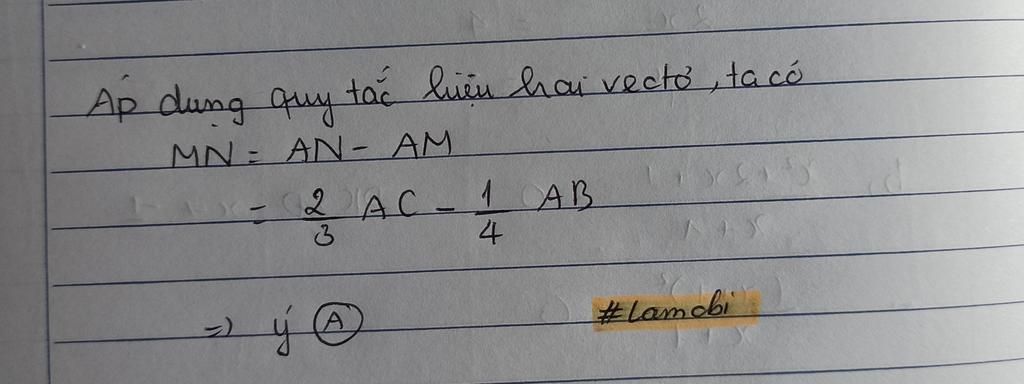 Áp dụng quy tắc hiệu hai vectơ, ta có
MN = AN - AM
= 2/3 AC - 1/4 AB
=) ý A
#Lamchi